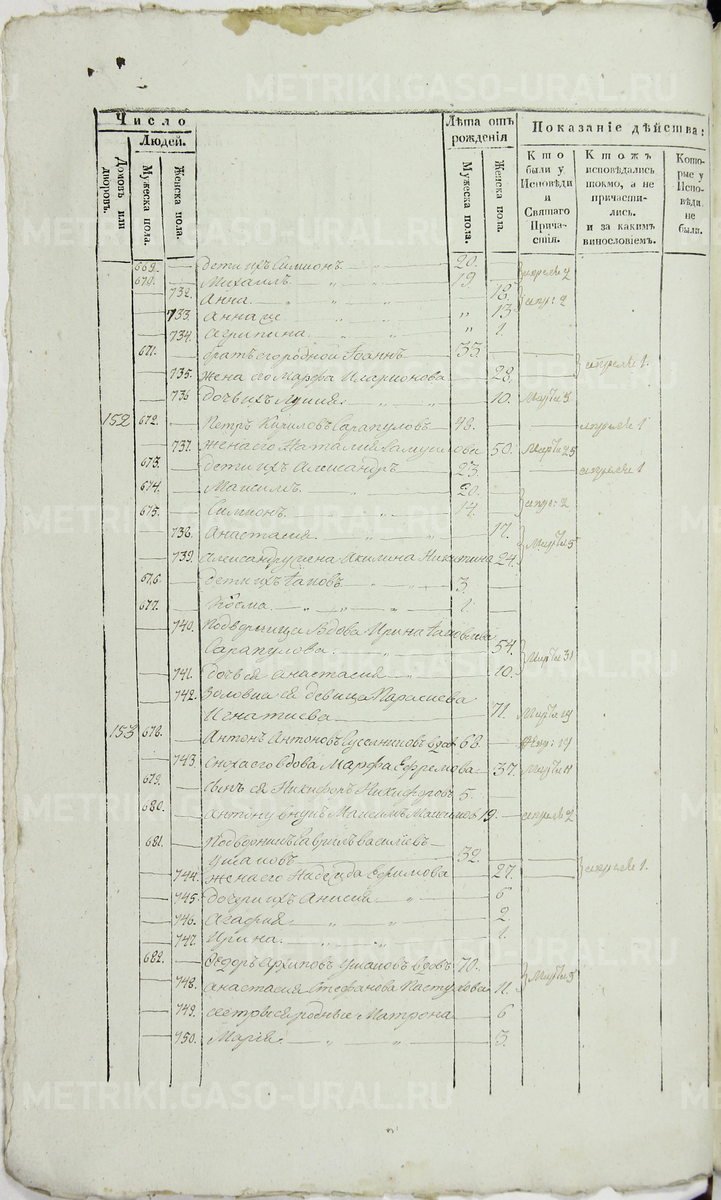 METRIKI.GASO-URAL.RU
Число
Людей.
Домовъ или дворовъ.
Мужеска пола.
Женска пола.
Лѣта отъ рожденія
Мужеска пола.
Женска пола.
Показаніе дѣйства:
Кто были у Исповѣди и Святаго Прича-стія.
Ктожъ исповѣдались токмо, а не причасти-лись. и за какимъ винословіемъ.
Кото-рые у Испо-вѣди не были.
669. дети ихъ Симионъ 20.
670. Михаилъ " " 19 апреля 2
732. Анна. " " 18.
733. Анна же " " 13 апр: 2
734. Агрипина " " 1.
671. братъ его родной Iоаннъ 33.
735. жена его Марфа Иларионова 28. апреля 1.
735 дочь ихъ " " 10. Марта
152 672. Петръ Кириловъ Сарапуловъ 48. апреля 1
737. жена его Наталия Самуилова 50. Марта 25
673. дети ихъ Александръ 23 апреля 1
674. Максимъ " 20.
675. Симионъ " 14. апр: 2
738. Анастасия " " 17.
739. Александру жена Акилина Никитина 24. Марта 5
676. дети ихъ Iаковъ " 3.
677. Косма " " 1.
740. Подворница вдова Ирина Iаковлева
Сарапулова. " 54.
741. дочь ея Анастасия " 10. Марта 31
742. Золовка ея девица Параскева
Игнатиева 71. Марта 19
153 678. Антонъ Антоновъ вдовъ 68. Апр: 19
743 Сноха его вдова Марфа Ефремова 37. Марта 11
679. Сынъ ея Никифоръ Никифоровъ 5.
680. Антону внукъ Максимъ Максимовъ 19. апреля 2
681. Подворникъ Гаврилъ Василиевъ
Ушаковъ 32.
744. жена его Надежда Ефимова 27. апреля 1.
745. дочери ихъ Анисия " 6
746. Агафия " " 2.
747. Ирина. " " 1.
682. Федоръ Архиповъ Ушаковъ вдовъ 70.
748. Анастасия Стефанова Пастухова 11. Марта
749. сестры ея родные Матрона 6
750. Мария. " " 3.